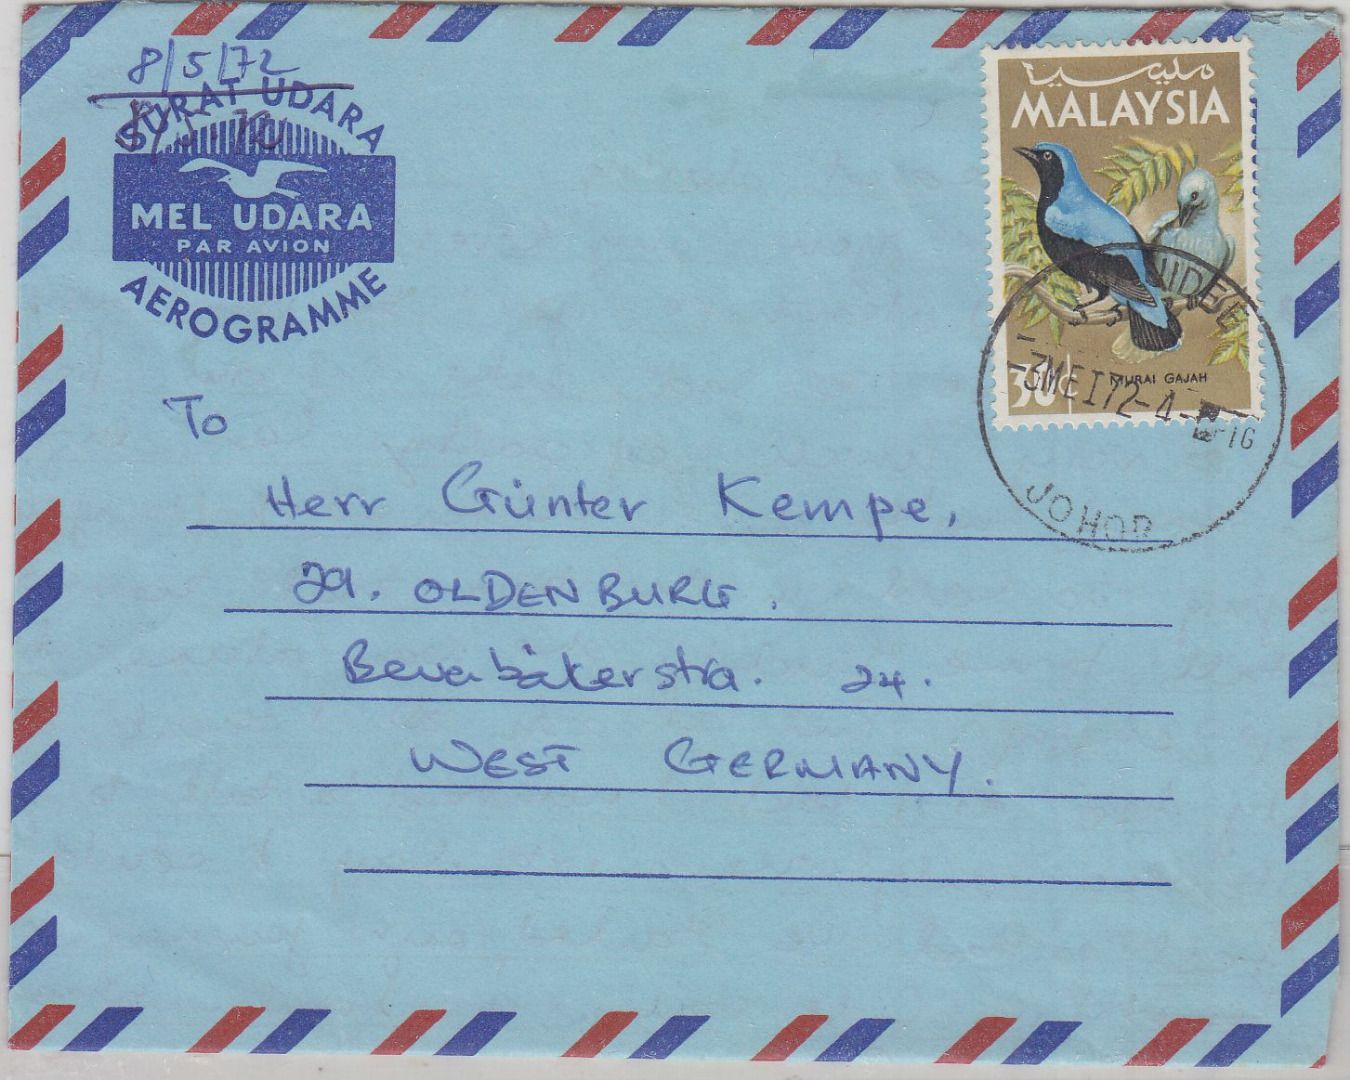 8/5/72
SURAT UDARA
MEL UDARA
PAR AVION
AEROGRAMME
مليسيا
MALAYSIA
30c
MURAI GAJAH
-3MEI72-4-
JOHOR
To
Herr Günter Kempe,
29. OLDENBURG.
24.
WEST GERMANY.